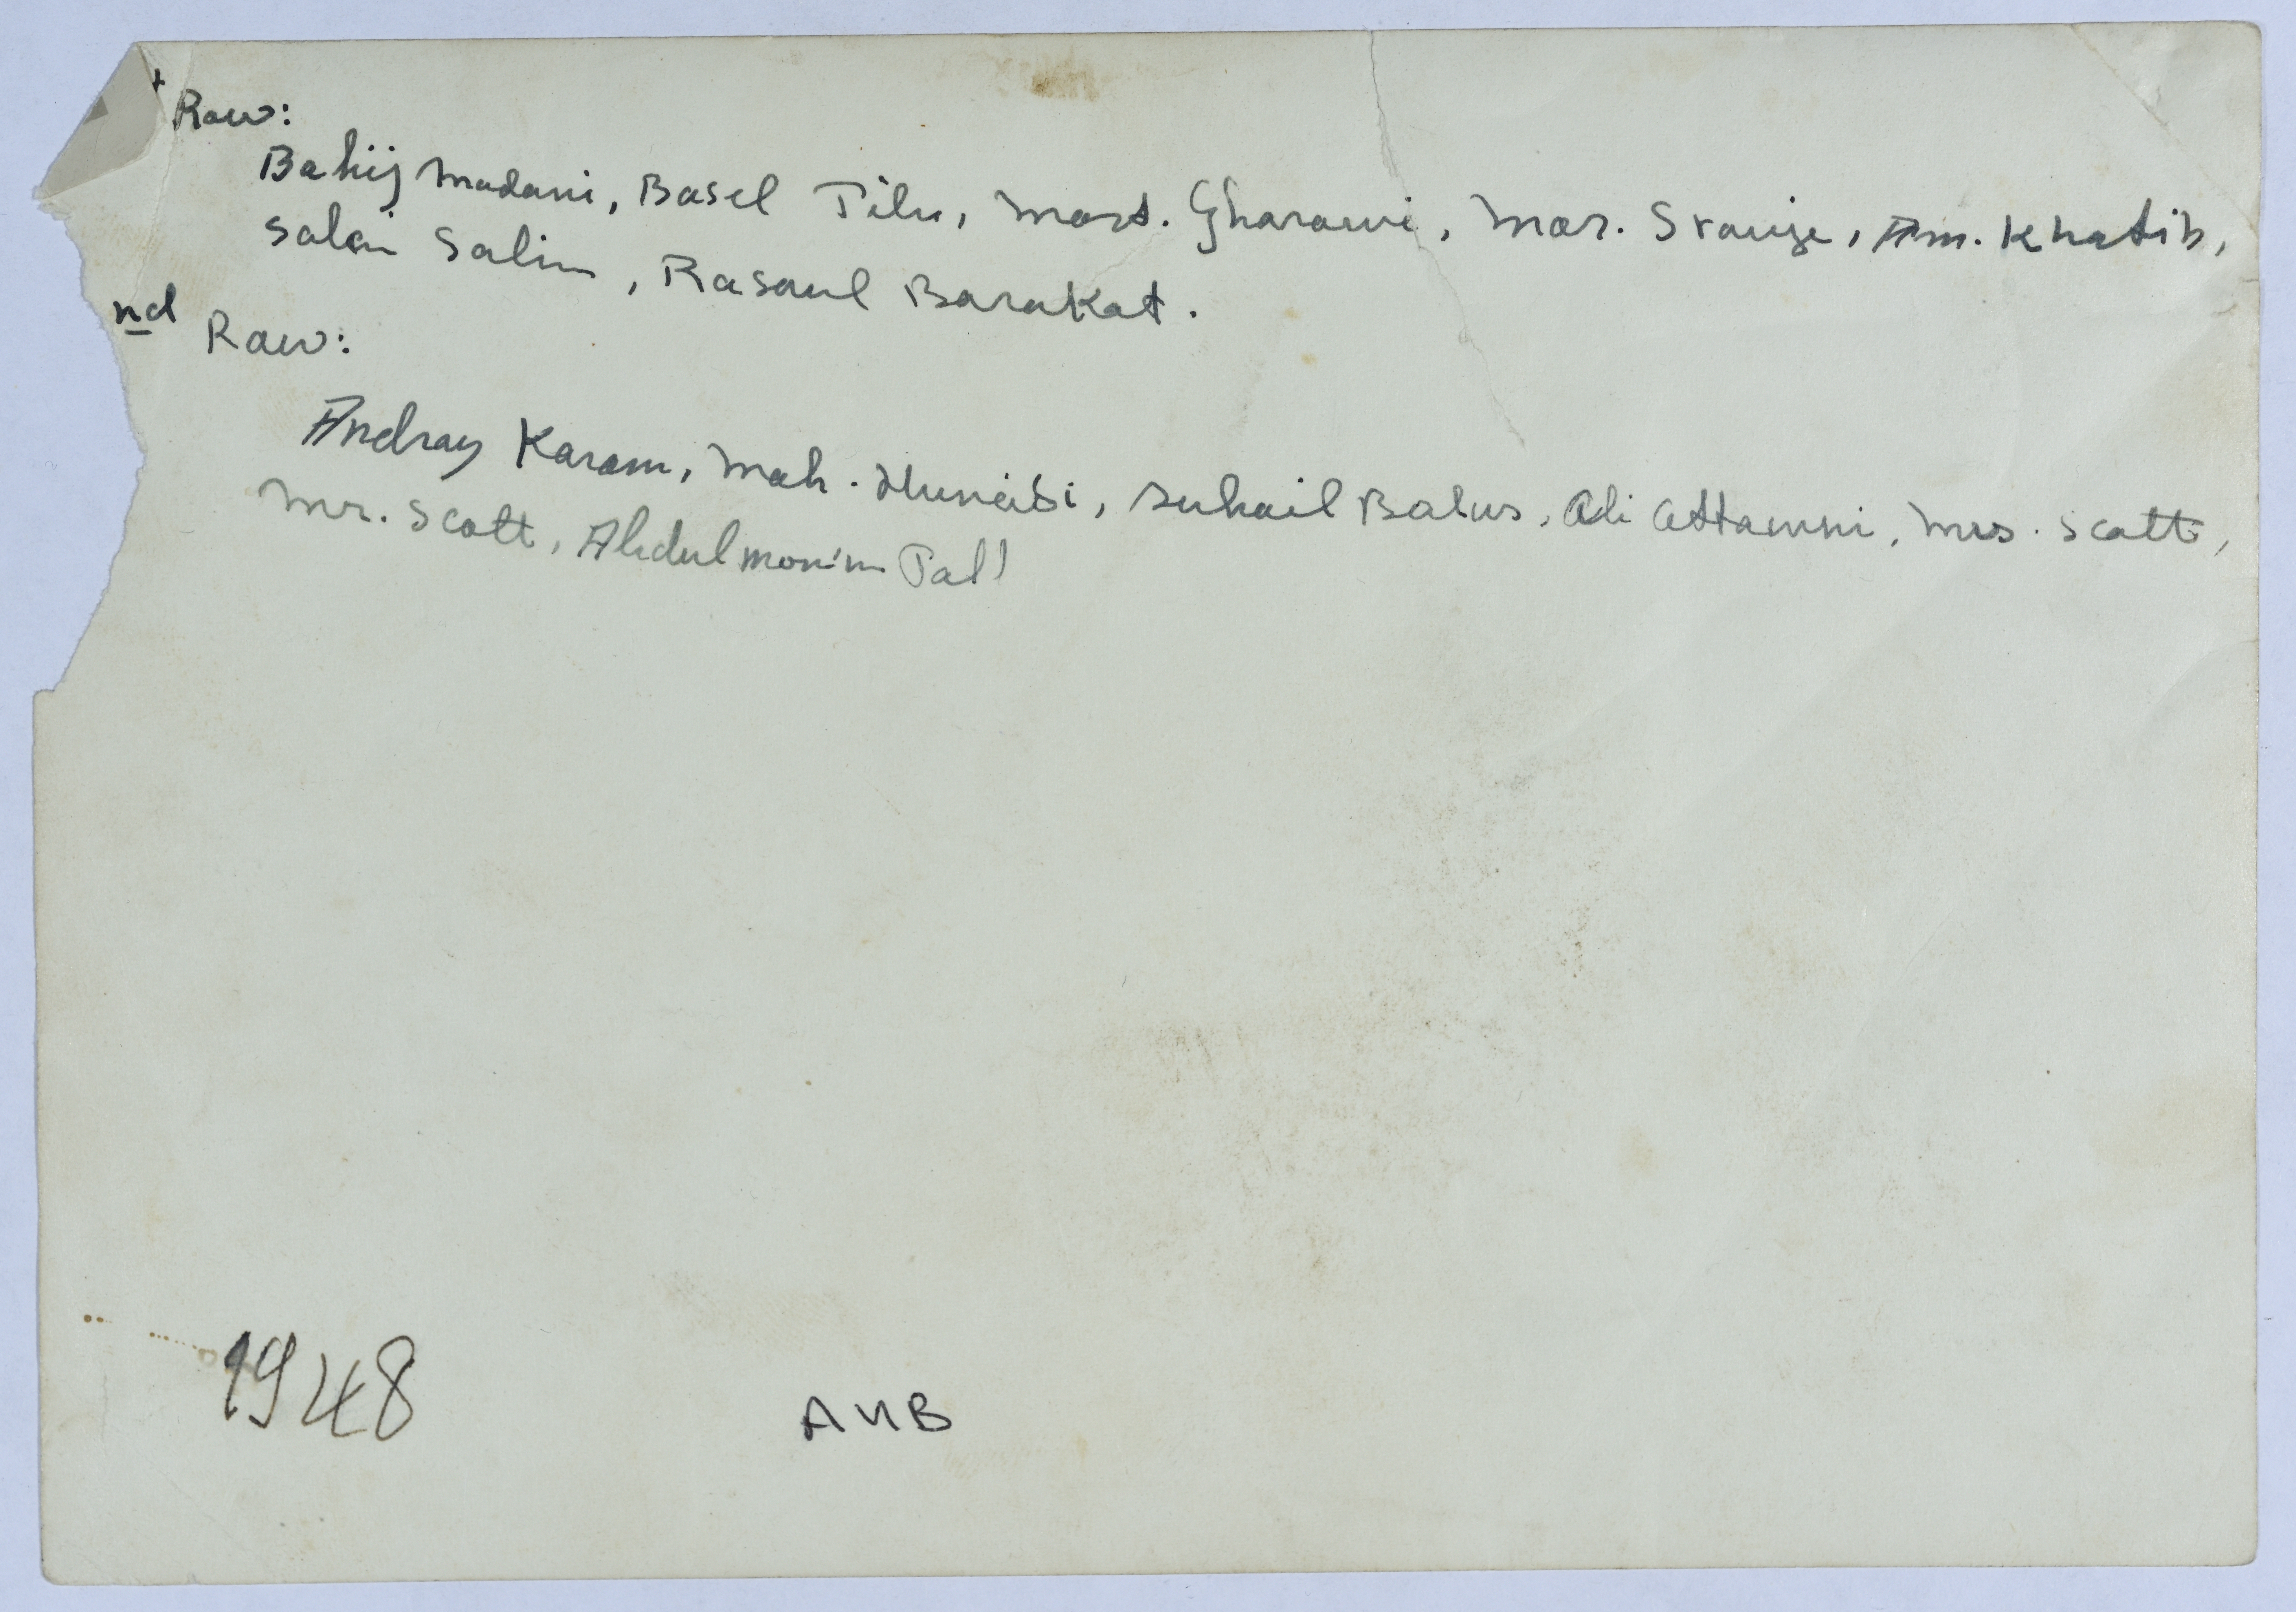 t Raw:
Bahij Madani, Basel Tilu, Mort. Gharawi, Mar. Srouije, Am. Khatib,
Salim, Rasoul Barakat.
nd Raw:
Andray Karam, Mah. Huneidi, Suhail Balus, Ali Attawni, Mrs. Scott,
Mr. Scott, Abdulmonim Tall
1948 AUB